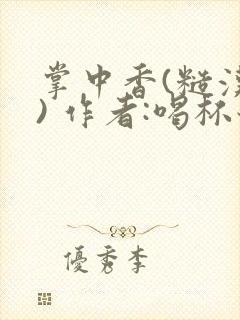 掌中香(糙
) 作者:喝杯
優秀李